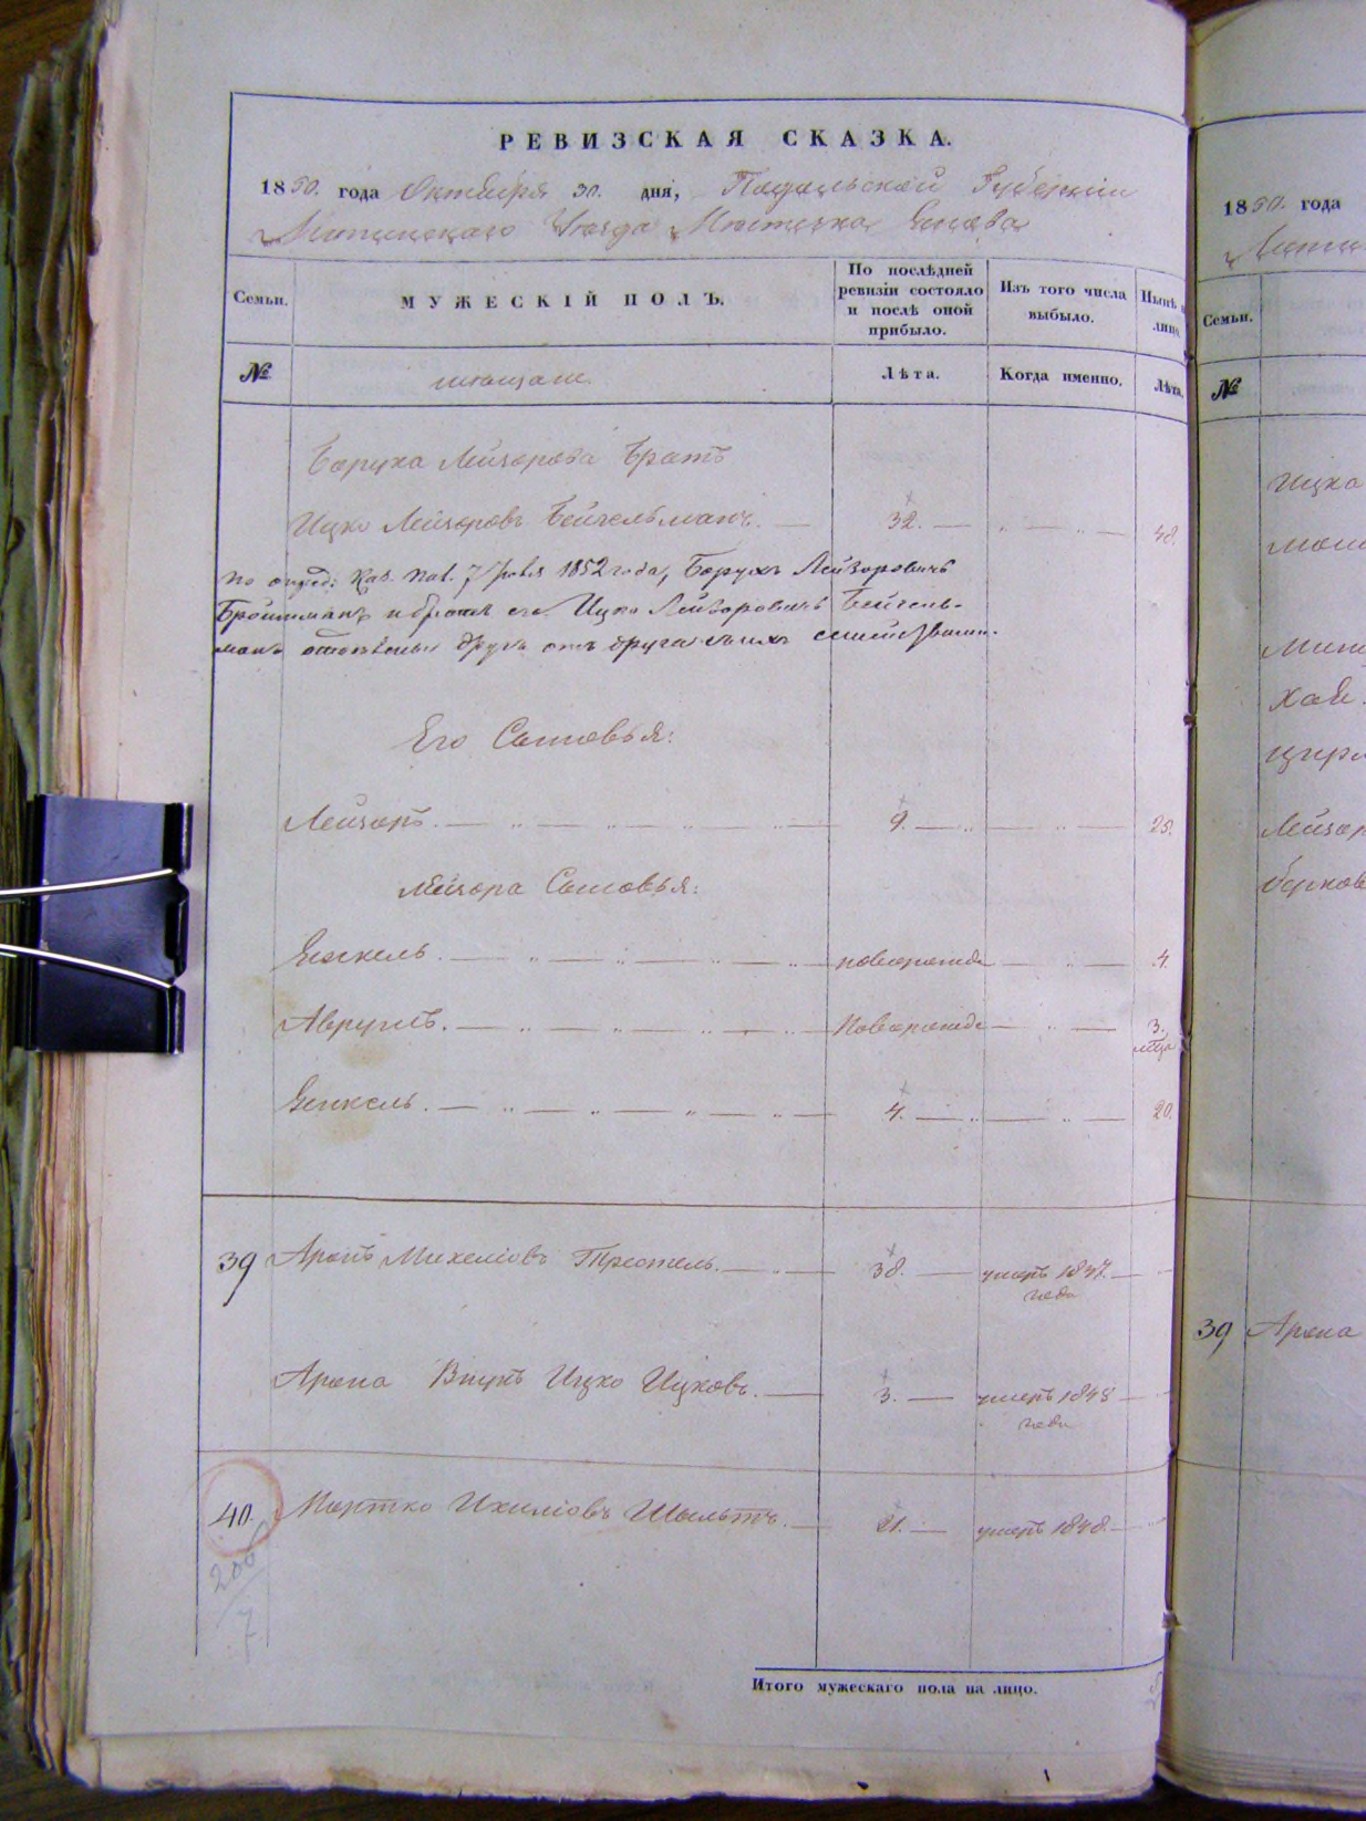 РЕВИЗСКАЯ СКАЗКА.
1850. года Октября 30. дня, Подольской Губернии
Литинского Уезда Местечка Янова
Семьи.
МУЖЕСКІЙ ПОЛЪ.
По послѣдней ревизіи состояло и послѣ оной прибыло.
Изъ того числа выбыло.
Нынѣ
лицо.
№
мещане.
Лѣта.
Когда именно.
Лѣта.
Боруха Лейзорова Братъ
Ицко Лейзоровъ Бейчельманъ. 32. 48.
по опред: Каз. Пал. 7 1852 года, Борухъ Лейзоровичъ
Бройтманъ и братъ его Ицко Лейзоровичъ Бейчель-
манъ другъ отъ друга
Его Сыновья:
Лейзоръ. 9. 25.
Лейзора Сыновья:
новорожде 4.
Аврумъ. Новорожде 3. мца
Янкель. 4. 20.
39 Аронъ Михелювъ 38. умеръ 1847. года
Арона Внукъ Ицко Ицковъ. 3. умеръ 1848 года
40. Мортко Ихилювъ 21. умеръ 1848.
206
7
Итого мужескаго пола на лицо.
1850. года
Семьи.
№
Ицка
Лейзор
39 Арона